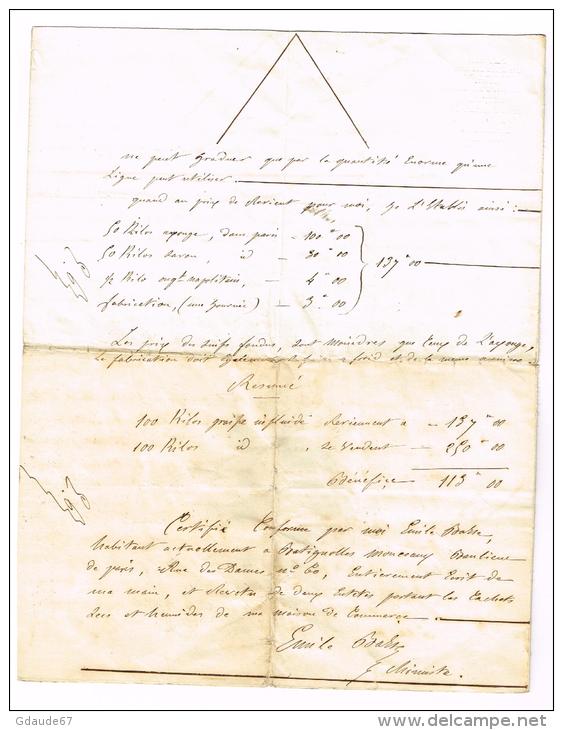 ne peut Graduer que par la quantité Enorme qu'une
Ligne peut utiliser.
quand au prix de Revient pour moi, je L'Etablis ainsi :
50 Kilos axonge, dans paris — 100 " 00
50 Kilos Savon, id — 30 " 00
½ Kilo ongt napolitain, — 4 " 00
fabrication, (une Journée) — 3 " 00
137 " 00
Les prix des suifs fondus, sont moindres que Ceux de L'axonge,
La fabrication doit également se faire a froid et de la meme manière
Resumé
100 Kilos graisse influide Reviennent a — 137 " 00
100 Kilos id, se Vendent — 250 " 00
Bénéfice — 113 " 00
Certifié Conforme par moi Emile
habitant actuellement a Batignolles Monceaux Banlieue
de paris, Rue des Dames no 60, Entierement Ecrit de
ma main, et Revetu de deux Entetes portant les Cachets
Secs et humides de ma maison de Commerce
Emile
Chimiste.
© Gdaude67
www.delcampe.net